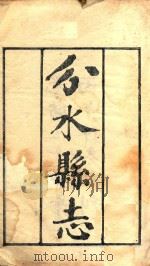 分水縣志
www.tooou.info